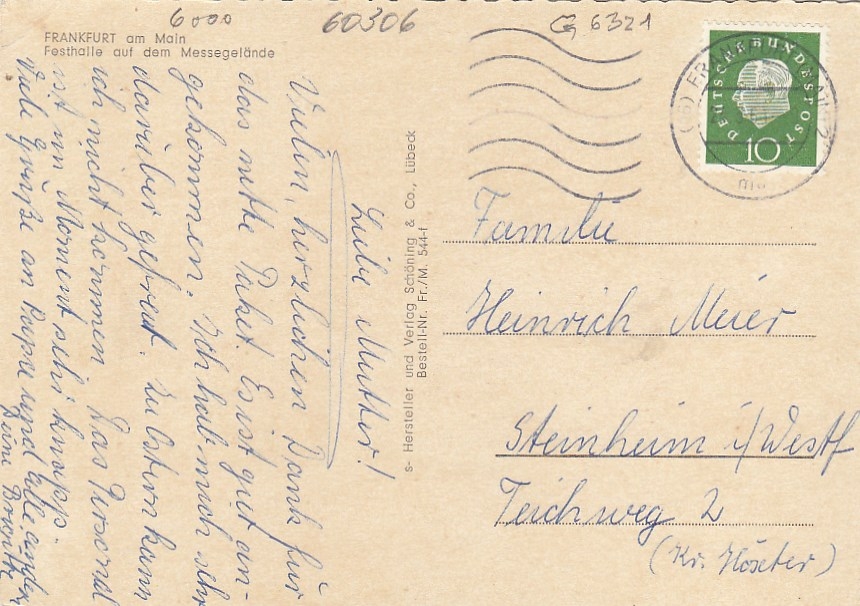 6000
60306
G 6321
FRANKFURT am Main
Festhalle auf dem Messegelände
Liebe Mutter!
Vielen, herzlichen Dank für
das nette Paket. Es ist gut an-
gekommen. Ich hab mich sehr
darüber gefreut. Zu Ostern kann
ich nicht kommen. Das Personal
ist im Moment sehr knapp.
Viele Grüße an Papa und alle andern
Deine
s- Hersteller und Verlag Schöning & Co., Lübeck
Bestell-Nr. Fr./M. 544-f
DEUTSCHE BUNDESPOST
10
Familie
Heinrich Meier
Steinheim i/Westf
Teichweg 2
(Kr. Höxter)